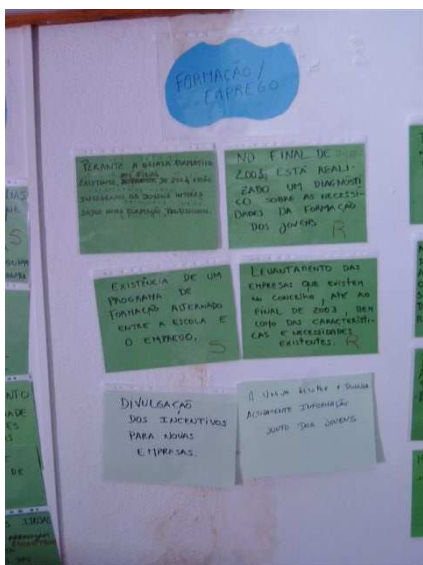 FORMAÇÃO /
EMPREGO
PERANTE A OFERTA FORMATIVA
EXISTENTE, ATÉ FINAL DE 2004 ESTÃO
INTEGRADOS OS JOVENS INTERES
SADOS NUMA FORMAÇÃO PROFISSIONAL.
NO FINAL DE
2003, ESTÁ REALI-
ZADO UM DIAGNÓSTI
CO SOBRE AS NECESSI-
DADES DA FORMAÇÃO
DOS JOVENS R
EXISTÊNCIA DE UM
PROGRAMA DE
FORMAÇÃO ALTERNADO
ENTRE A ESCOLA E
O EMPREGO. S
LEVANTAMENTO DAS
EMPRESAS QUE EXISTEM
NO CONCELHO, ATÉ AO
FINAL DE 2003, BEM
COMO DAS CARACTERÍSTI-
CAS E NECESSIDADES
EXISTENTES. R
DIVULGAÇÃO
DOS INCENTIVOS
PARA NOVAS
EMPRESAS.
A
ACTIVAMENTE INFORMAÇÃO
JUNTO DOS JOVENS